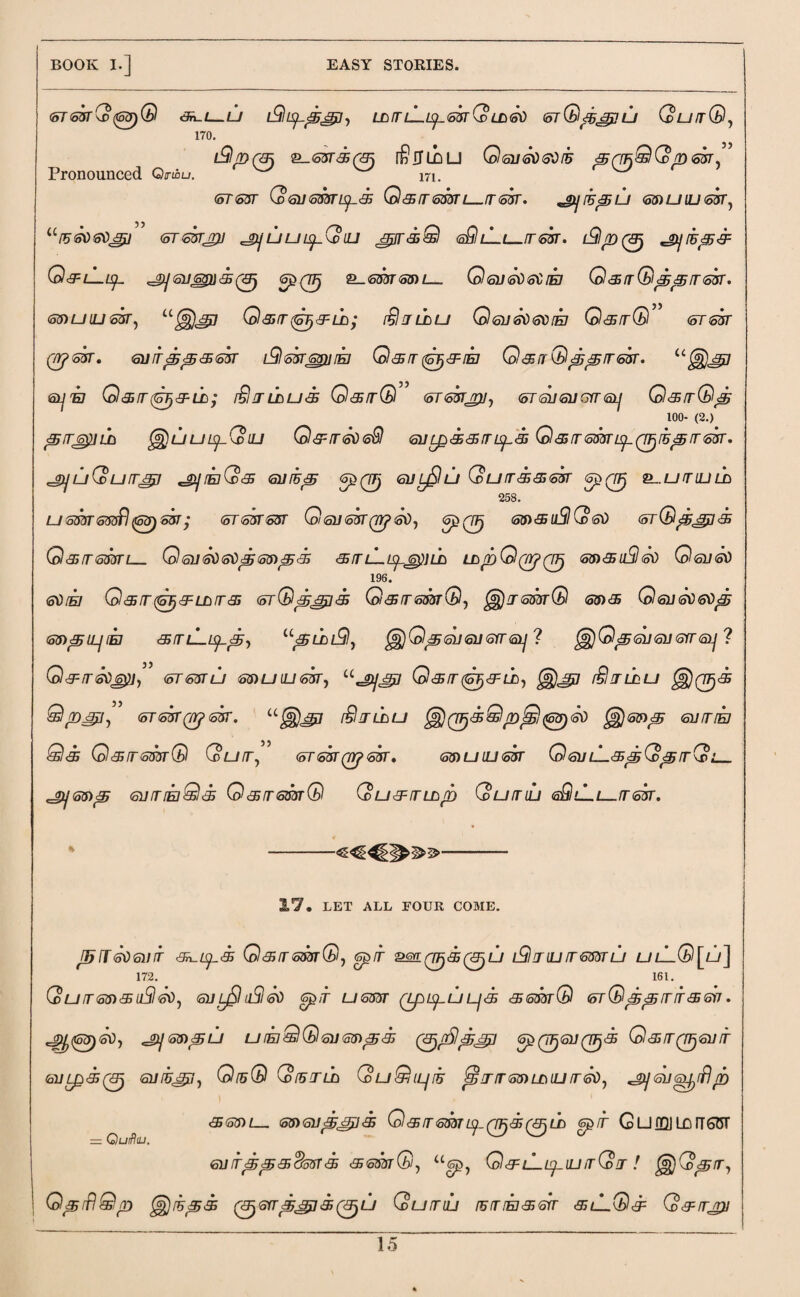 BOOK I.] EASY STORIES.
என்னோடு கூடப் பிடித்து, மாட்டின்மேல் எடுத்துப் போடு,
170.
பிறகு உனக்கு நிரம்ப வெல்லந் தருகிறேன்,”
Pronounced ரொம்ப. 171.
என் வேண்டிக் கொண்டான். அந்தப் பையன்,
“நல்லது” என்று அப்படியே தூக்கி விட்டான். பிறகு அந்தச்
செட்டி அவனுக்கு ஒரு உண்டை வெல்லங் கொடுத்தான்.
பையன், “இது கொஞ்சம்; நிரம்ப வெல்லங் கொடு” என்
றான். வர்த்தகன் பின்னுங் கொஞ்சங் கொடுத்தான். “இது
வுங் கொஞ்சம்; நிரம்பக் கொடு” என்று, எவ்வளவு கொடுத்
100- (2.)
தாலும் இப்படியே சொல்லி வழக்காடிக் கொண்டிருந்தான்.
அப்போது அங்கே வந்த ஒரு வழிப் போக்கன் ஒரு உபாயம்
258.
பண்ணினான்; என்னவென்றால், ஒரு கையிலே எடுத்துக்
கொண்ட வெல்லத்தைக் காட்டிலும் மற்றொரு கையில் வெல்
196.
லங் கொஞ்சமாக எடுத்துக் கொண்டு, இரண்டு கை வெல்லத்
தையுங் காட்டித், “தம்பி, இதெவ்வளவு? இதெவ்வளவு?
சொல்லு,” எனப் பையன், “அது கொஞ்சம், இது நிரம்ப இருக்
கிறது,” என்றான். “இது நிரம்ப இருக்கிறதினால் இதை வாங்
கிக் கொண்டு போ,” என்றான். பையன் வெட்கத்தோடே
அதை வாங்கிக் கொண்டு பேசாமற் போய் விட்டான்.
17. LET ALL FOUR COME.
நால்வர் கூடிக் கொண்டு, ஓர் ஊருக்குப் பிரயாணப் பட்டு[ப்]
172. 161.
போகையில், வழியில் ஓர் பண முடிப்புக் கண்டு எடுத்தார்கள்.
ஆனால், அதைப் பங்கிடுவதைக் குறித்து ஒருவருக் கொருவர்
வழக்கு வந்து, நெடு நேரம் பேசியுந் தீராமையால், அவ்வூரிற்
கடை வைத்துக் கொண்டிருக்கும் ஓர் பெறுமான
= பெரிய.
வர்த்தகனைக் கண்டு, “ஓ, செட்டியாரே! இதோ,
தெரிகிற இந்தக் குளத்துக்குப் போய் நாங்கள் கட்டுச் சோறு
15